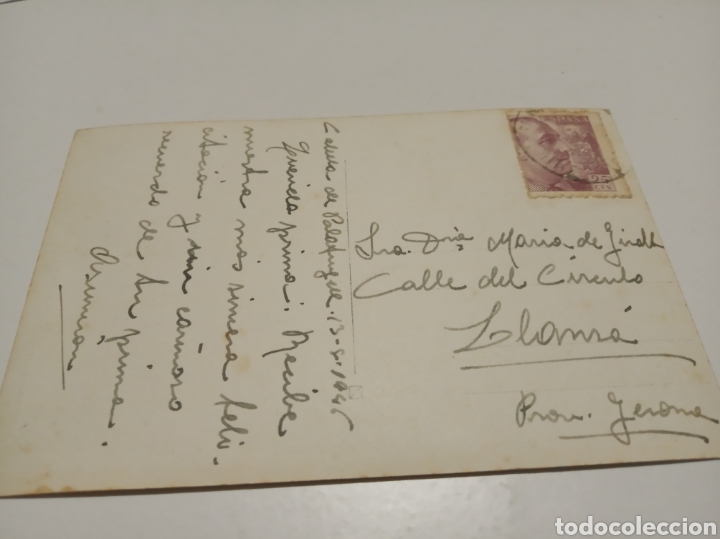 Calella de Palafrugell. 13-8-1945
Querida prima: Recibe
nuestra mas sincera feli-
citación y un cariñoso
recuerdo de tu prima.
Asunción
ESPAÑA
25
CTS
Sra. Dña Maria de Giralt
Calle del Círculo
Llansá
Prov. Gerona
todocoleccion